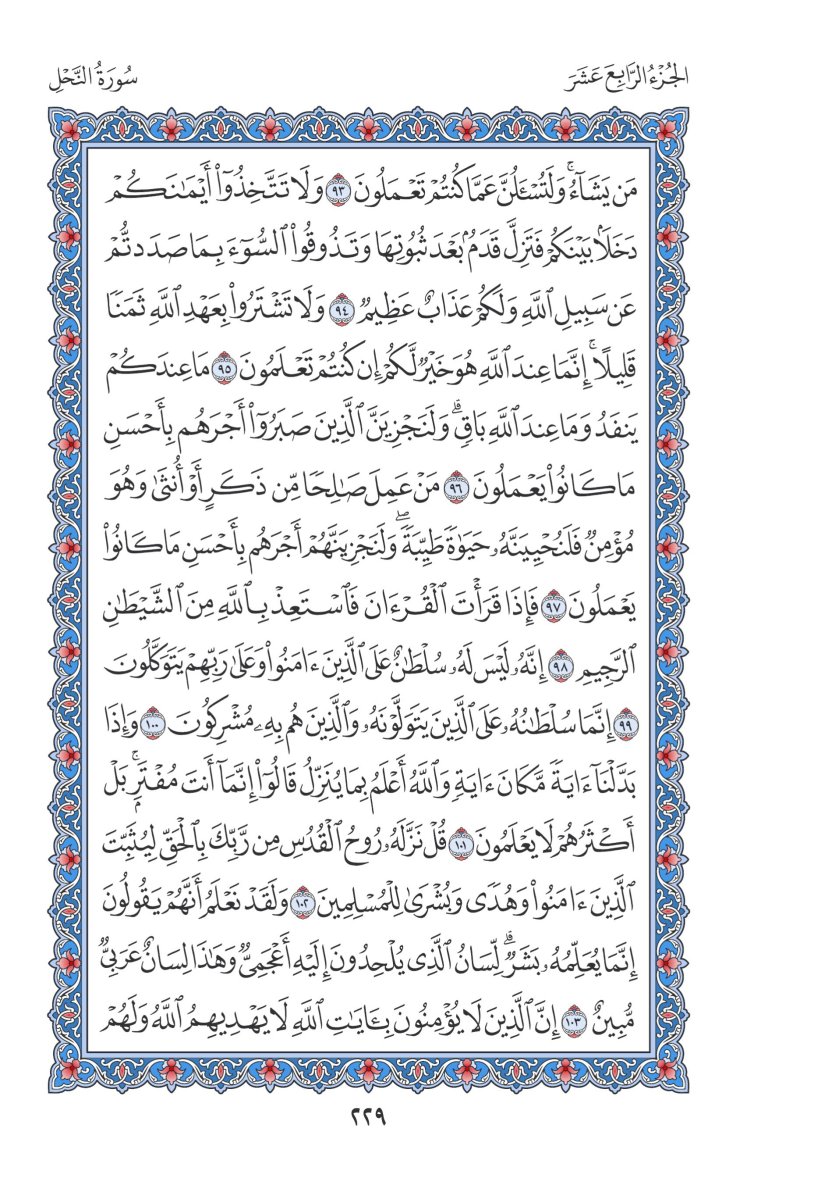 الجُزْءُ الرَّابِعَ عَشَرَ
سُورَةُ النَّحْلِ
مَن يَشَآءُۚ وَلَتُسْـَٔلُنَّ عَمَّا كُنتُمْ تَعْمَلُونَ ٩٣ وَلَا تَتَّخِذُوٓا۟ أَيْمَـٰنَكُمْ
دَخَلَۢا بَيْنَكُمْ فَتَزِلَّ قَدَمٌۢ بَعْدَ ثُبُوتِهَا وَتَذُوقُوا۟ ٱلسُّوٓءَ بِمَا صَدَدتُّمْ
عَن سَبِيلِ ٱللَّهِ وَلَكُمْ عَذَابٌ عَظِيمٌ ٩٤ وَلَا تَشْتَرُوا۟ بِعَهْدِ ٱللَّهِ ثَمَنًا
قَلِيلًاۚ إِنَّمَا عِندَ ٱللَّهِ هُوَ خَيْرٌ لَّكُمْ إِن كُنتُمْ تَعْلَمُونَ ٩٥ مَا عِندَكُمْ
يَنفَدُ وَمَا عِندَ ٱللَّهِ بَاقٍۗ وَلَنَجْزِيَنَّ ٱلَّذِينَ صَبَرُوٓا۟ أَجْرَهُم بِأَحْسَنِ
مَا كَانُوا۟ يَعْمَلُونَ ٩٦ مَنْ عَمِلَ صَـٰلِحًا مِّن ذَكَرٍ أَوْ أُنثَىٰ وَهُوَ
مُؤْمِنٌ فَلَنُحْيِيَنَّهُۥ حَيَوٰةً طَيِّبَةًۖ وَلَنَجْزِيَنَّهُمْ أَجْرَهُم بِأَحْسَنِ مَا كَانُوا۟
يَعْمَلُونَ ٩٧ فَإِذَا قَرَأْتَ ٱلْقُرْءَانَ فَٱسْتَعِذْ بِٱللَّهِ مِنَ ٱلشَّيْطَـٰنِ
ٱلرَّجِيمِ ٩٨ إِنَّهُۥ لَيْسَ لَهُۥ سُلْطَـٰنٌ عَلَى ٱلَّذِينَ ءَامَنُوا۟ وَعَلَىٰ رَبِّهِمْ يَتَوَكَّلُونَ
٩٩ إِنَّمَا سُلْطَـٰنُهُۥ عَلَى ٱلَّذِينَ يَتَوَلَّوْنَهُۥ وَٱلَّذِينَ هُم بِهِۦ مُشْرِكُونَ ١٠٠ وَإِذَا
بَدَّلْنَآ ءَايَةً مَّكَانَ ءَايَةٍ وَٱللَّهُ أَعْلَمُ بِمَا يُنَزِّلُ قَالُوٓا۟ إِنَّمَآ أَنتَ مُفْتَرٍۭۚ بَلْ
أَكْثَرُهُمْ لَا يَعْلَمُونَ ١٠١ قُلْ نَزَّلَهُۥ رُوحُ ٱلْقُدُسِ مِن رَّبِّكَ بِٱلْحَقِّ لِيُثَبِّتَ
ٱلَّذِينَ ءَامَنُوا۟ وَهُدًى وَبُشْرَىٰ لِلْمُسْلِمِينَ ١٠٢ وَلَقَدْ نَعْلَمُ أَنَّهُمْ يَقُولُونَ
إِنَّمَا يُعَلِّمُهُۥ بَشَرٌۗ لِّسَانُ ٱلَّذِى يُلْحِدُونَ إِلَيْهِ أَعْجَمِىٌّ وَهَـٰذَا لِسَانٌ عَرَبِىٌّ
مُّبِينٌ ١٠٣ إِنَّ ٱلَّذِينَ لَا يُؤْمِنُونَ بِـَٔايَـٰتِ ٱللَّهِ لَا يَهْدِيهِمُ ٱللَّهُ وَلَهُمْ
٢٢٩